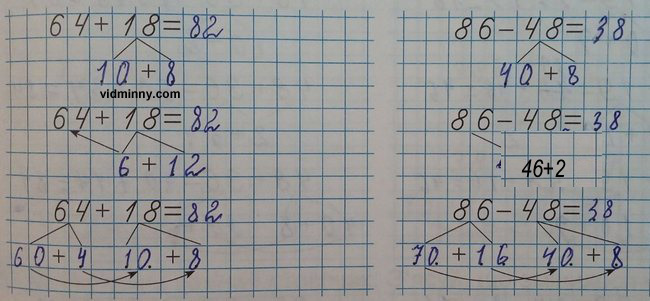 64+18=82
10+8
vidminny.com
64+18=82
6+12
64+18=82
60+4 10.+8
86-48=38
40+8
86-48=38
46+2
86-48=38
70.+16 40.+8.